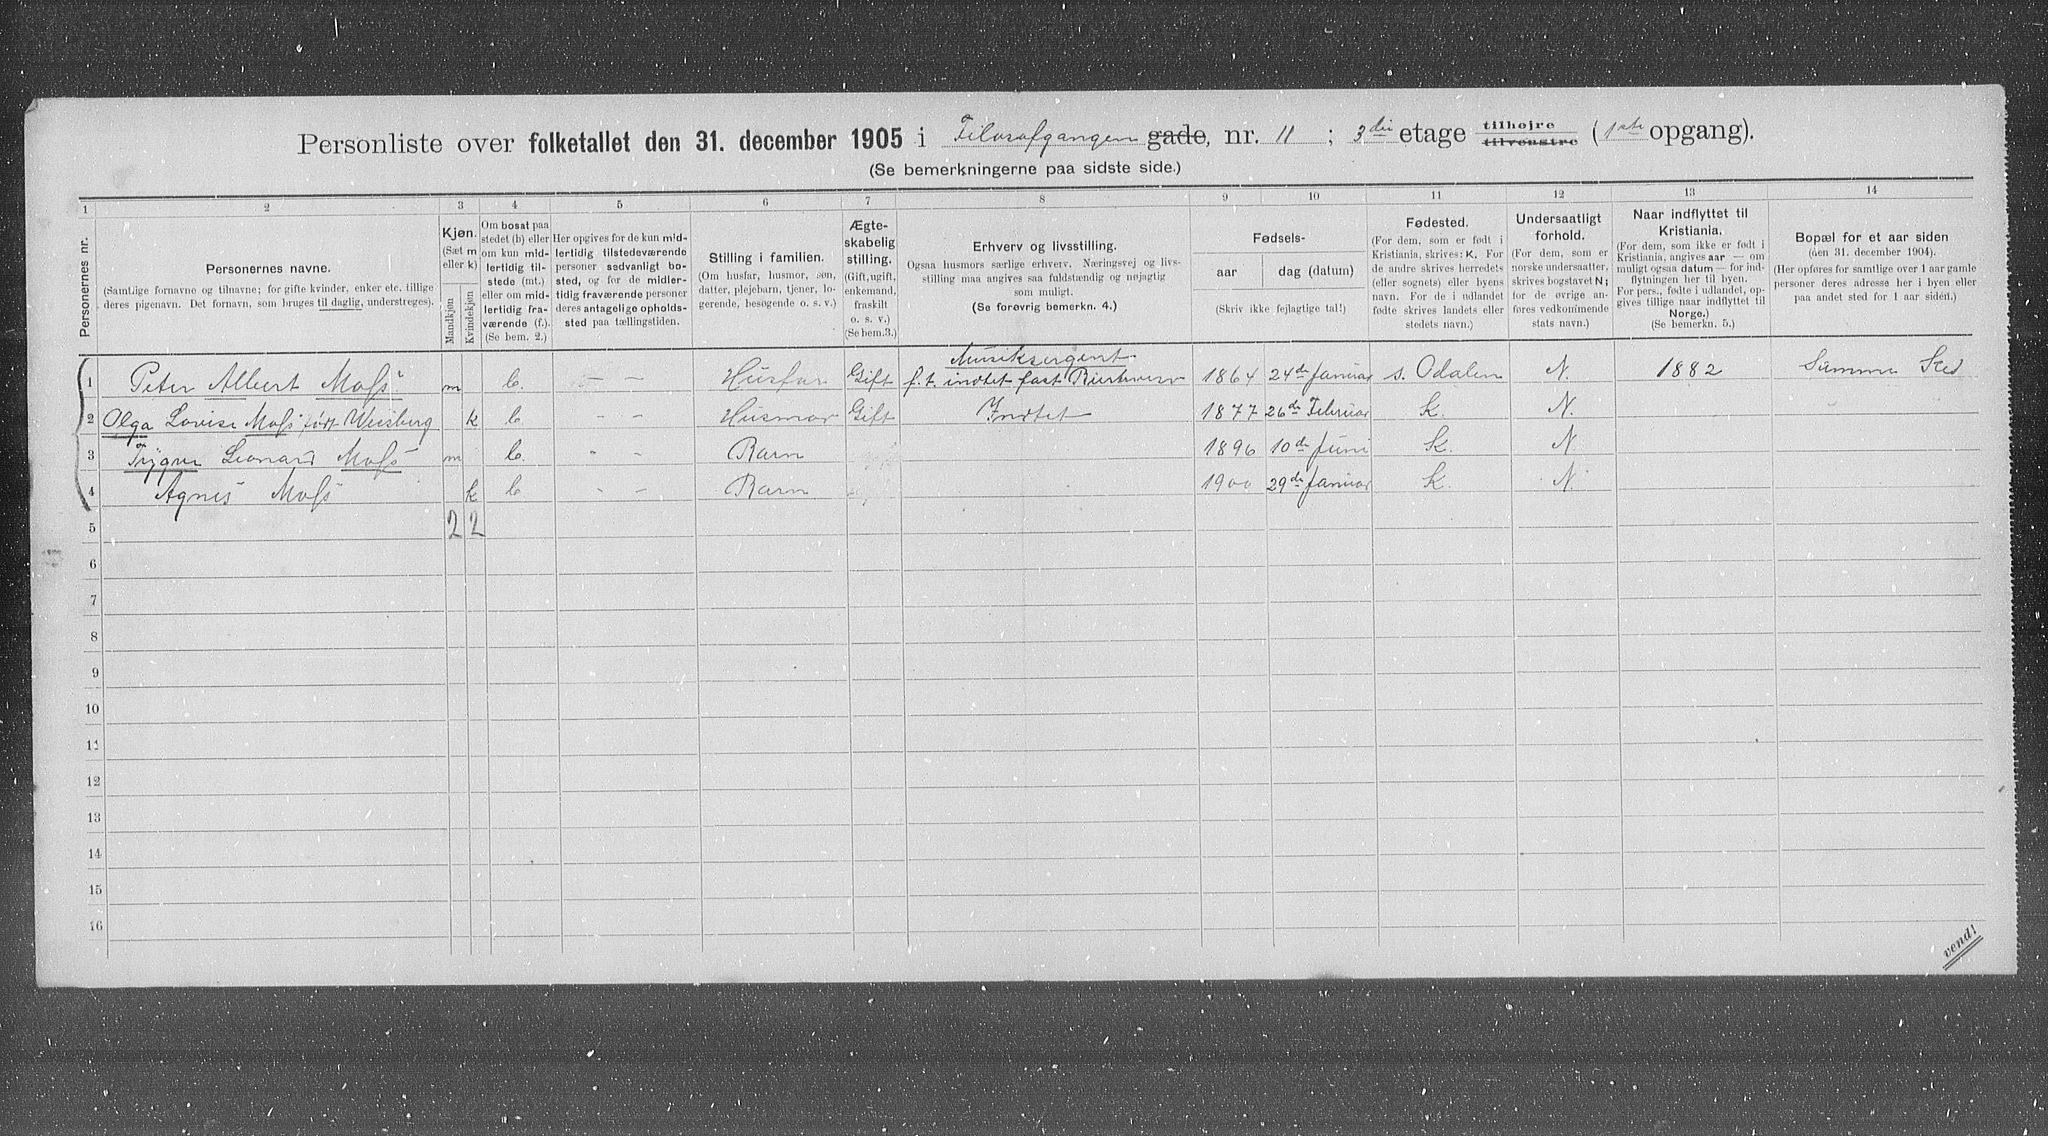 Personliste over folketallet den 31. december 1905 i Filosofgangen gade, nr. 11 ; 3die etage tilhøjre tilvenstre (1ste opgang).
(Se bemerkningerne paa sidste side.)
1 2 3 4 5 6 7 8 9 10 11 12 13 14
Personernes nr.
Personernes navne.
(Samtlige fornavne og tilnavne; for gifte kvinder, enker etc. tillige
deres pigenavn. Det fornavn, som bruges til daglig, understreges).
Kjøn.
(Sæt m
eller k)
Mandkjøn
Kvindekjøn
Om bosat paa
stedet (b) eller
om kun mid-
lertidig til-
stede (mt.)
eller om mid-
lertidig fra-
værende (f.).
(Se bem. 2.)
Her opgives for de kun mid-
lertidig tilstedeværende
personer sedvanlig bo-
sted, og for de midler-
tidig fraværende personer
deres antagelige opholds-
sted paa tællingstiden.
Stilling i familien.
(Om husfar, husmor, søn,
datter, plejebarn, tjener, lo-
gerende, besøgende o. s. v.)
Ægte-
skabelig
stilling.
(Gift, ugift,
enkemand,
fraskilt
o. s. v.)
(Se bem.3.)
Erhverv og livsstilling.
Ogsaa husmors særlige erhverv. Næringsvej og livs-
stilling maa angives saa fuldstændig og nøjagtig
som muligt.
(Se forøvrig bemerkn. 4.)
Fødsels-
aar dag (datum)
(Skriv ikke fejlagtige tal!)
Fødested.
(For dem, som er født i
Kristiania, skrives: K. For
de andre skrives herredets
(eller sognets) eller byens
navn. For de i udlandet
fødte skrives landets eller
stedets navn.)
Undersaatligt
forhold.
(For dem, som er
norske undersaatter,
skrives bogstavet N;
for de øvrige an-
føres vedkommende
stats navn.)
Naar indflyttet til
Kristiania.
(For dem, som ikke er født i
Kristiania, angives aar — om
muligt ogsaa datum — for ind-
flytningen her til byen.
For pers., fødte i udlandet, op-
gives tillige naar indflyttet til
Norge.)
(Se bemerkn. 5.)
Bopæl for et aar siden
(den 31. december 1904).
(Her opføres for samtlige over 1 aar gamle
personer deres adresse her i byen eller
paa andet sted for 1 aar siden.)
Musiksergent
1 Peter Albert Moss m b. — — Husfar Gift f. t. indtet fast 1864 24de Januar s. Odalen N. 1882 Samme Sted
2 Olga Lovise Moss født k b - - Husmor Gift Indtet 1877 26de Februar K. N.
3 Trygve Leonard Moss m b. - - Barn 1896 10de Juni K. N
4 Agnes Moss k b - - Barn 1900 29de Januar K. N.
5 2 2
6
7
8
9
10
11
12
13
14
15
16
vend!